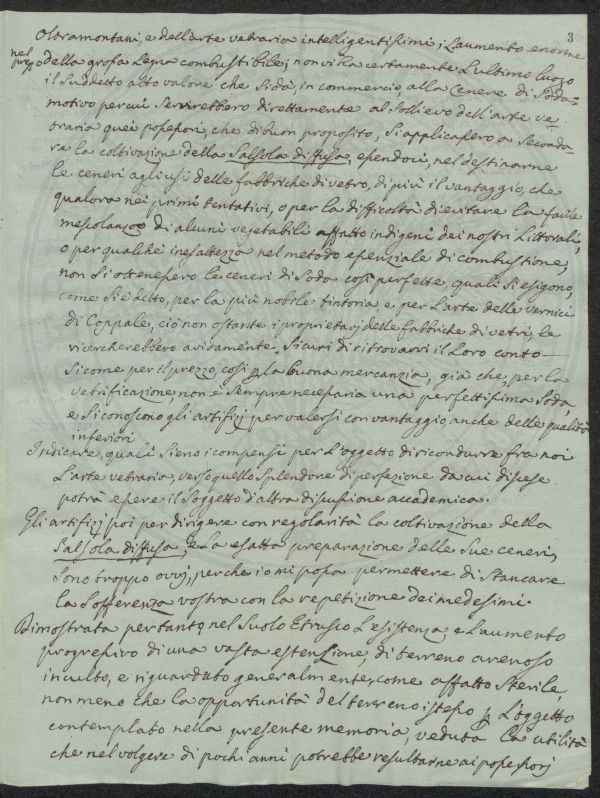 3
Oltramontani, e dell'arte vetraria intelligentissimi; L'aumento enorme
nel prezzo della grossa Legna combustibile; non vi ha certamente L'ultimo luogo
il suddetto alto valore che si dà, in commercio, alla Cenere di Soda=
motivo per cui servirebbero direttamente al sollievo dell'arte ve-
traria quei possessori, che di buon proposito, si applicassero a seconda-
re la coltivazione della Salsola diffusa, essendovi, nel destinarne
le ceneri agli usi delle fabbriche di vetro, di più il vantaggio, che
qualora nei primi tentativi, o per la difficoltà di evitare la facile
mescolanza di alcuni vegetabili affatto indigeni dei nostri Littorali,
o per qualche inesattezza nel metodo essenziale di combustione,
non si ottenessero le ceneri di Soda così perfette, quali si esigono,
come si è detto, per la più nobile tintoria e per L'arte delle vernici
di Coppale, ciò non ostante i proprietarj delle fabbriche di vetri, le
ricercherebbero avidamente sicuri di ritrovarvi il Loro conto-
sicome per il prezzo, così p la buona mercanzia, già che, per la
vetrificazione non è sempre necessaria una perfettissima Soda,
e si conoscono gli artifizj per valersi con vantaggio, anche delle qualità
inferiori
Indicare, quali sieno i compensi per L'oggetto di ricondurre fra noi
L'arte vetraria, verso quello splendore di perfezione da cui discese
potrà essere il soggetto d'altra discussione accademica.
Gli artifizj poi per dirigere con regolarità la coltivazione della
Salsola diffusa, e La esatta preparazione delle sue ceneri,
sono troppo ovvj, perche io mi possa permettere di stancare
la sofferenza vostra con la repetizione dei medesimi.
Dimostrata pertanto, nel Suolo Etrusco L'esistenza, e L'aumento
progressivo di una vasta estensione, di terreno arenoso
inculto, e riguardato generalmente, come affatto sterile,
non meno che la opportunità del terreno istesso p L'oggetto
contemplato nella presente memoria, veduta la utilità
che nel volgere di pochi anni potrebbe resultarne ai possessorj